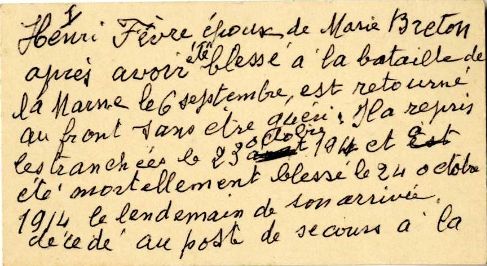 I
Henri Fèvre époux de Marie Breton
après avoir été blessé à la bataille de
la Marne le 6 septembre, est retourné
au front sans etre guéri. Il a repris
les tranchées le 23 octobre 1914 et a
été mortellement blessé le 24 octobre
1914 le lendemain de son arrivée.
décédé au poste de secours à la